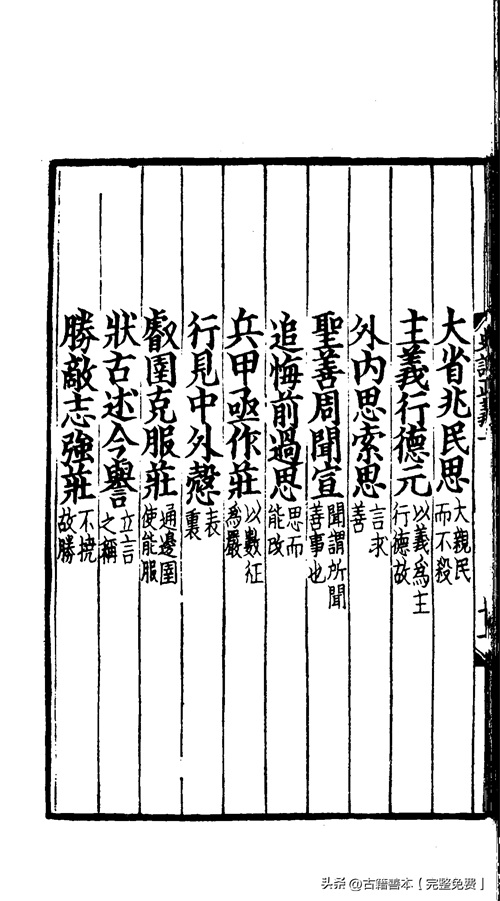 大省兆民思大親民而不殺
主義行德元以義爲主行德故
外内思索思言求善
聖善周聞宣聞謂所聞善事也
追悔前過思思而能改
兵甲亟作莊以數征爲嚴
行見中外愨表裏
叡圉克服莊通邊圉使能服
狀古述今譽立言之稱
勝敵志強莊不撓故勝
头条 @古籍善本【完整免费】